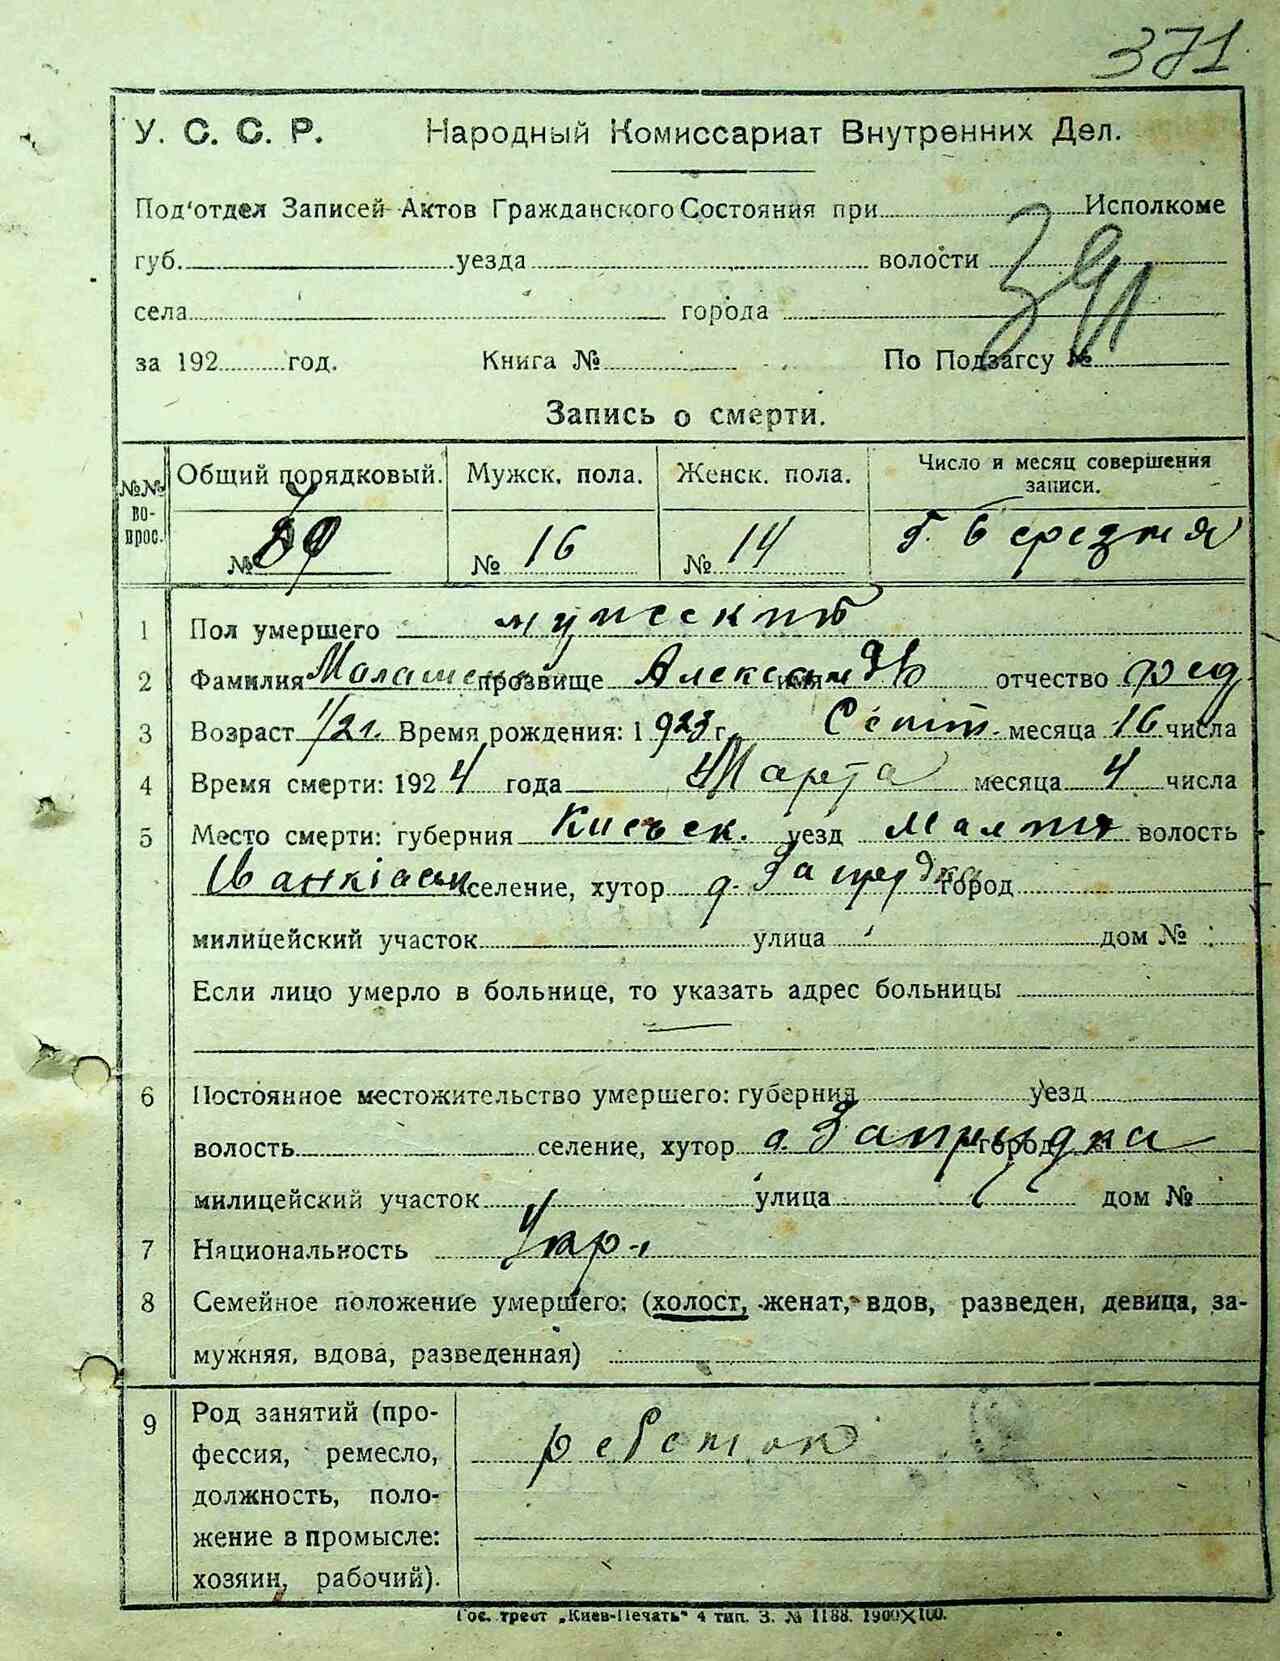 371
У. С. С. Р. Народный Комиссариат Внутренних Дел.
Под'отдел Записей Актов Гражданского Состояния при Исполкоме
губ. уезда волости
села города
за 192 год. Книга № По Подзагсу №
391
Запись о смерти.
№№ во-прос. Общий порядковый. Мужск. пола. Женск. пола. Число и месяц совершения записи.
№ № 16 № 14
1 Пол умершего
2 Фамилия прозвище Александр имя отчество
3 Возраст 1/2 г. Время рождения: 1923 г. Сент. месяца 16 числа
4 Время смерти: 1924 года Марта месяца 4 числа
5 Место смерти: губерния Киевск. уезд волость
селение, хутор д. Запрудка город
милицейский участок улица дом №
Если лицо умерло в больнице, то указать адрес больницы
6 Постоянное местожительство умершего: губерния уезд
волость селение, хутор д. Запрудка город
милицейский участок улица дом №
7 Национальность Укр.
8 Семейное положение умершего: (холост, женат, вдов, разведен, девица, за-
мужняя, вдова, разведенная)
9 Род занятий (про-
фессия, ремесло,
должность, поло-
жение в промысле:
хозяин, рабочий).
Гос. трест „Киев-Печать" 4 тип. З. № 1188. 1900×100.